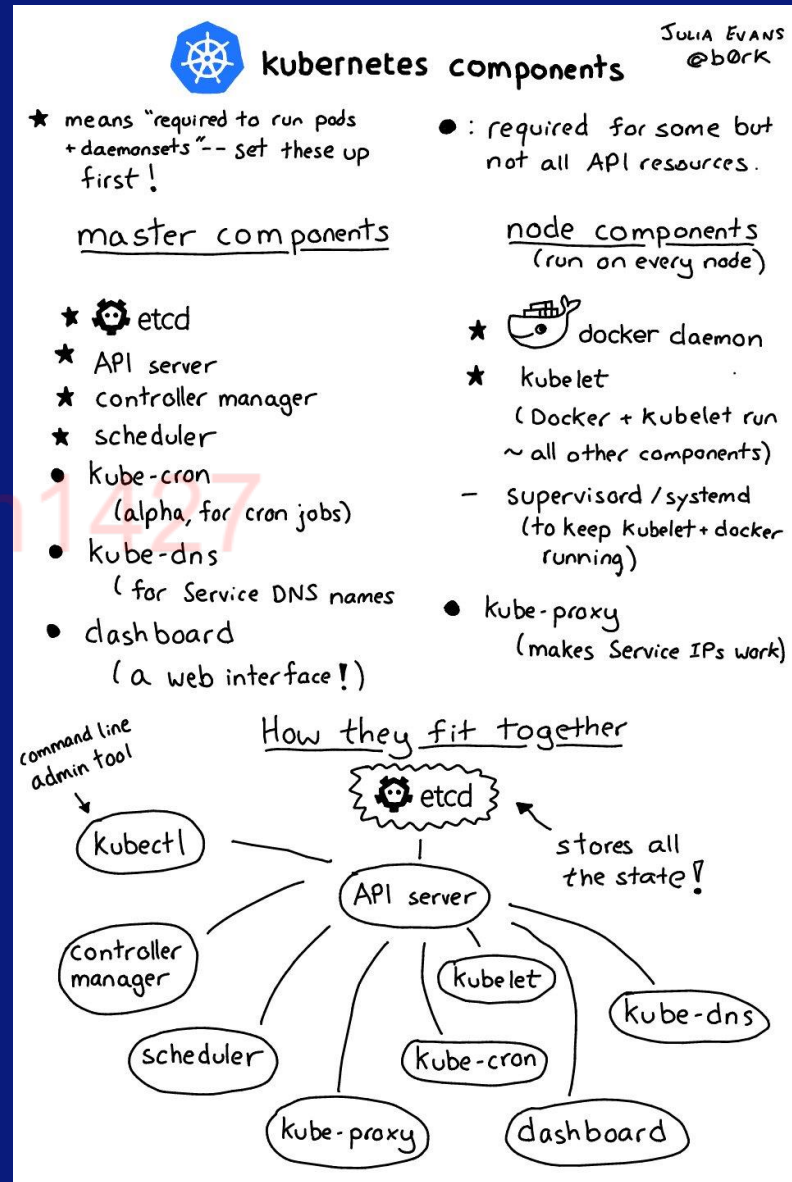 JULIA EVANS
@b0rk
kubernetes components
★ means "required to run pods
+ daemonsets" -- set these up
first!
● : required for some but
not all API resources.
master components
★ etcd
★ API server
★ controller manager
★ scheduler
● kube-cron
(alpha, for cron jobs)
● kube-dns
( for Service DNS names
● dashboard
(a web interface!)
node components
(run on every node)
★ docker daemon
★ kubelet
(Docker + kubelet run
~ all other components)
- supervisord / systemd
(to keep kubelet + docker
running)
● kube-proxy
(makes Service IPs work)
How they fit together
command line
admin tool
etcd
stores all
the state!
kubectl
API server
controller
manager
kubelet
kube-dns
scheduler
kube-cron
kube-proxy
dashboard
1427